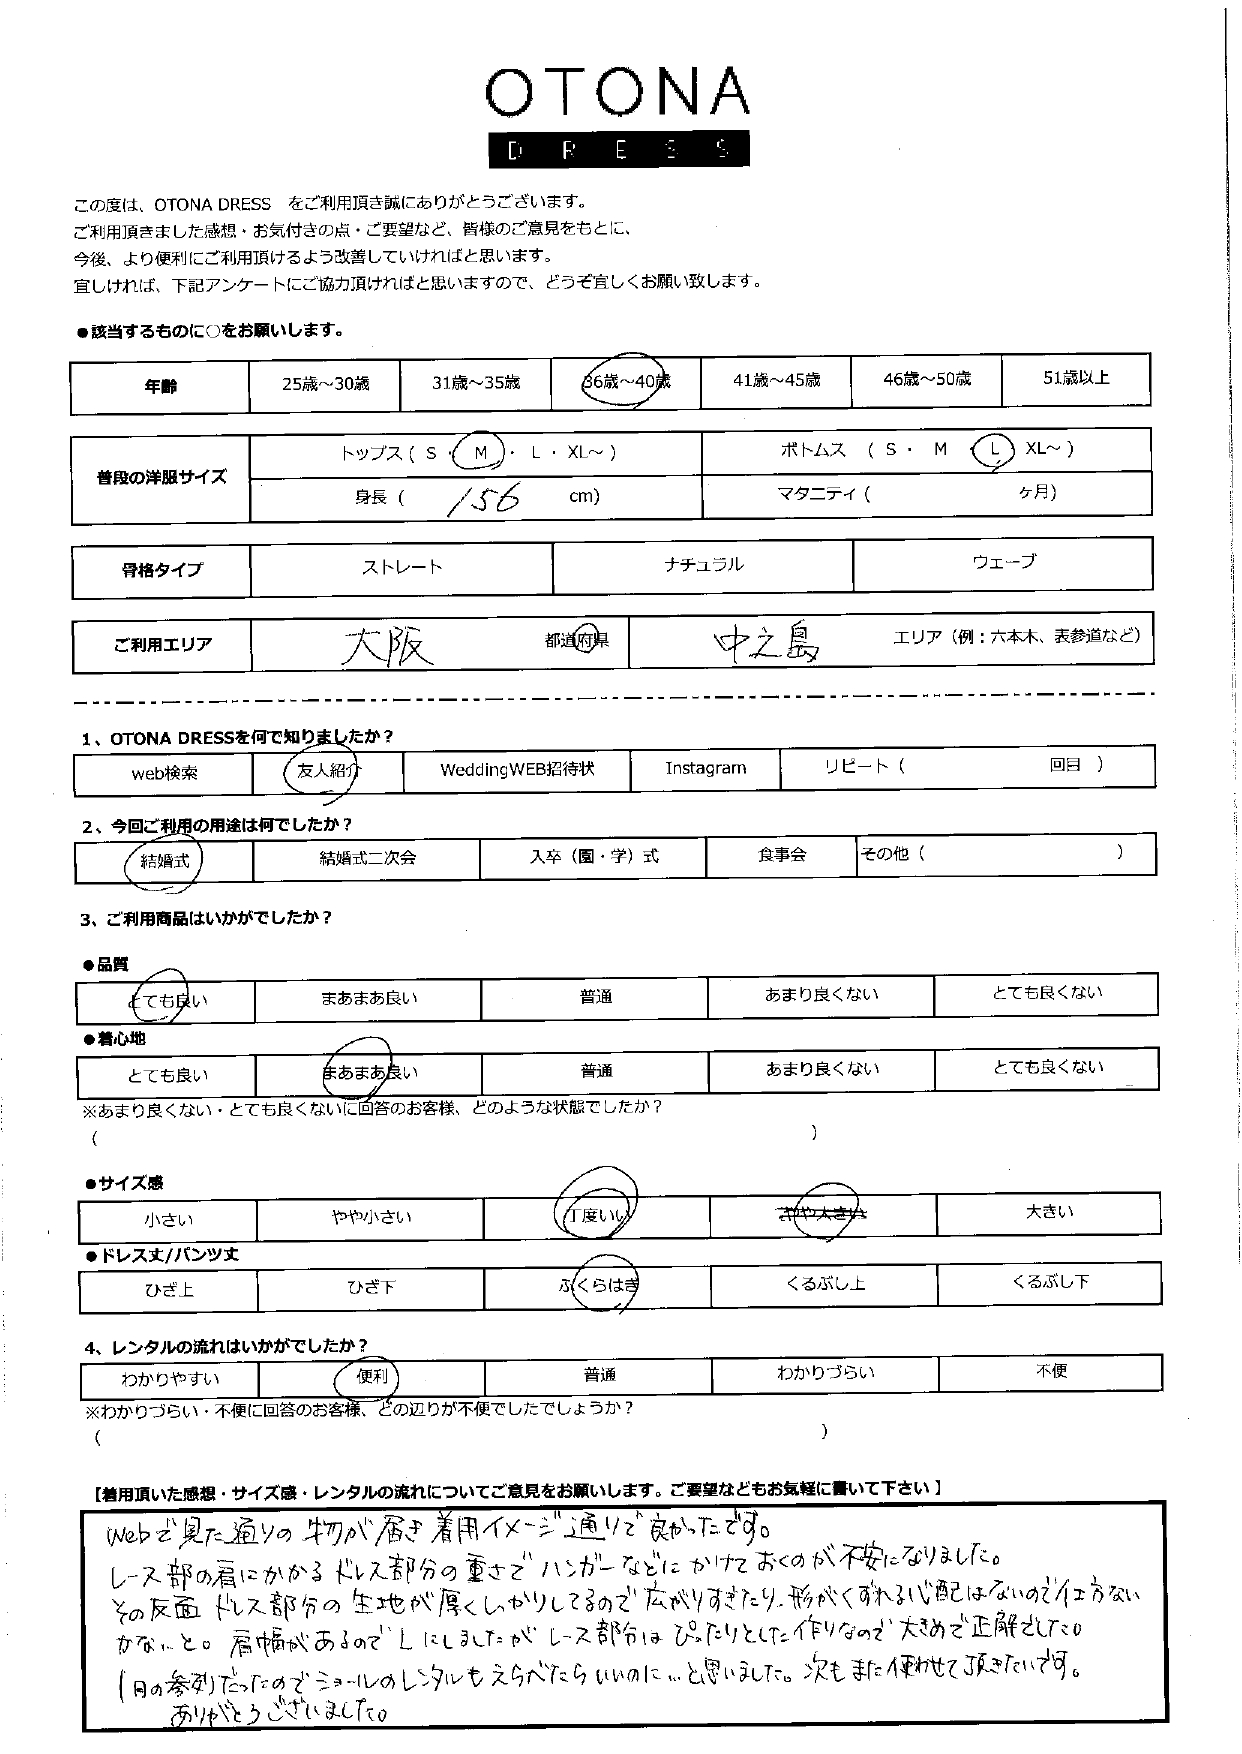 OTONA
DRESS
この度は、OTONA DRESS をご利用頂き誠にありがとうございます。
ご利用頂きました感想・お気付きの点・ご要望など、皆様のご意見をもとに、
今後、より便利にご利用頂けるよう改善していければと思います。
宜しければ、下記アンケートにご協力頂ければと思いますので、どうぞ宜しくお願い致します。
●該当するものに○をお願いします。
年齢 25歳～30歳 31歳～35歳 36歳～40歳 41歳～45歳 46歳～50歳 51歳以上
普段の洋服サイズ トップス ( S ・ M ・ L ・ XL～ ) ボトムス ( S ・ M ・ L XL～ )
身長 ( 156 cm) マタニティ ( ヶ月)
骨格タイプ ストレート ナチュラル ウェーブ
ご利用エリア 大阪 都道府県 中之島 エリア（例：六本木、表参道など）
1、OTONA DRESSを何で知りましたか？
web検索 友人紹介 WeddingWEB招待状 Instagram リピート ( 回目 )
2、今回ご利用の用途は何でしたか？
結婚式 結婚式二次会 入卒（園・学）式 食事会 その他 ( )
3、ご利用商品はいかがでしたか？
●品質
とても良い まあまあ良い 普通 あまり良くない とても良くない
●着心地
とても良い まあまあ良い 普通 あまり良くない とても良くない
※あまり良くない・とても良くないに回答のお客様、どのような状態でしたか？
( )
●サイズ感
小さい やや小さい 丁度いい やや大きい 大きい
●ドレス丈/パンツ丈
ひざ上 ひざ下 ふくらはぎ くるぶし上 くるぶし下
4、レンタルの流れはいかがでしたか？
わかりやすい 便利 普通 わかりづらい 不便
※わかりづらい・不便に回答のお客様、どの辺りが不便でしたでしょうか？
( )
【着用頂いた感想・サイズ感・レンタルの流れについてご意見をお願いします。ご要望などもお気軽に書いて下さい】
Webで見た通りの物が届き着用イメージ通りで良かったです。
レース部の肩にかかるドレス部分の重さでハンガーなどにかけておくのが不安になりました。
その反面ドレス部分の生地が厚くしっかりしてるので広がりすぎたり、形がくずれる心配はないので仕方ない
かな…と。肩幅があるのでLにしましたがレース部分はぴったりとした作りなので大きめで正解でした。
1月の参列だったのでショールのレンタルもえらべたらいいのに…と思いました。次もまた使わせて頂きたいです。
ありがとうございました。